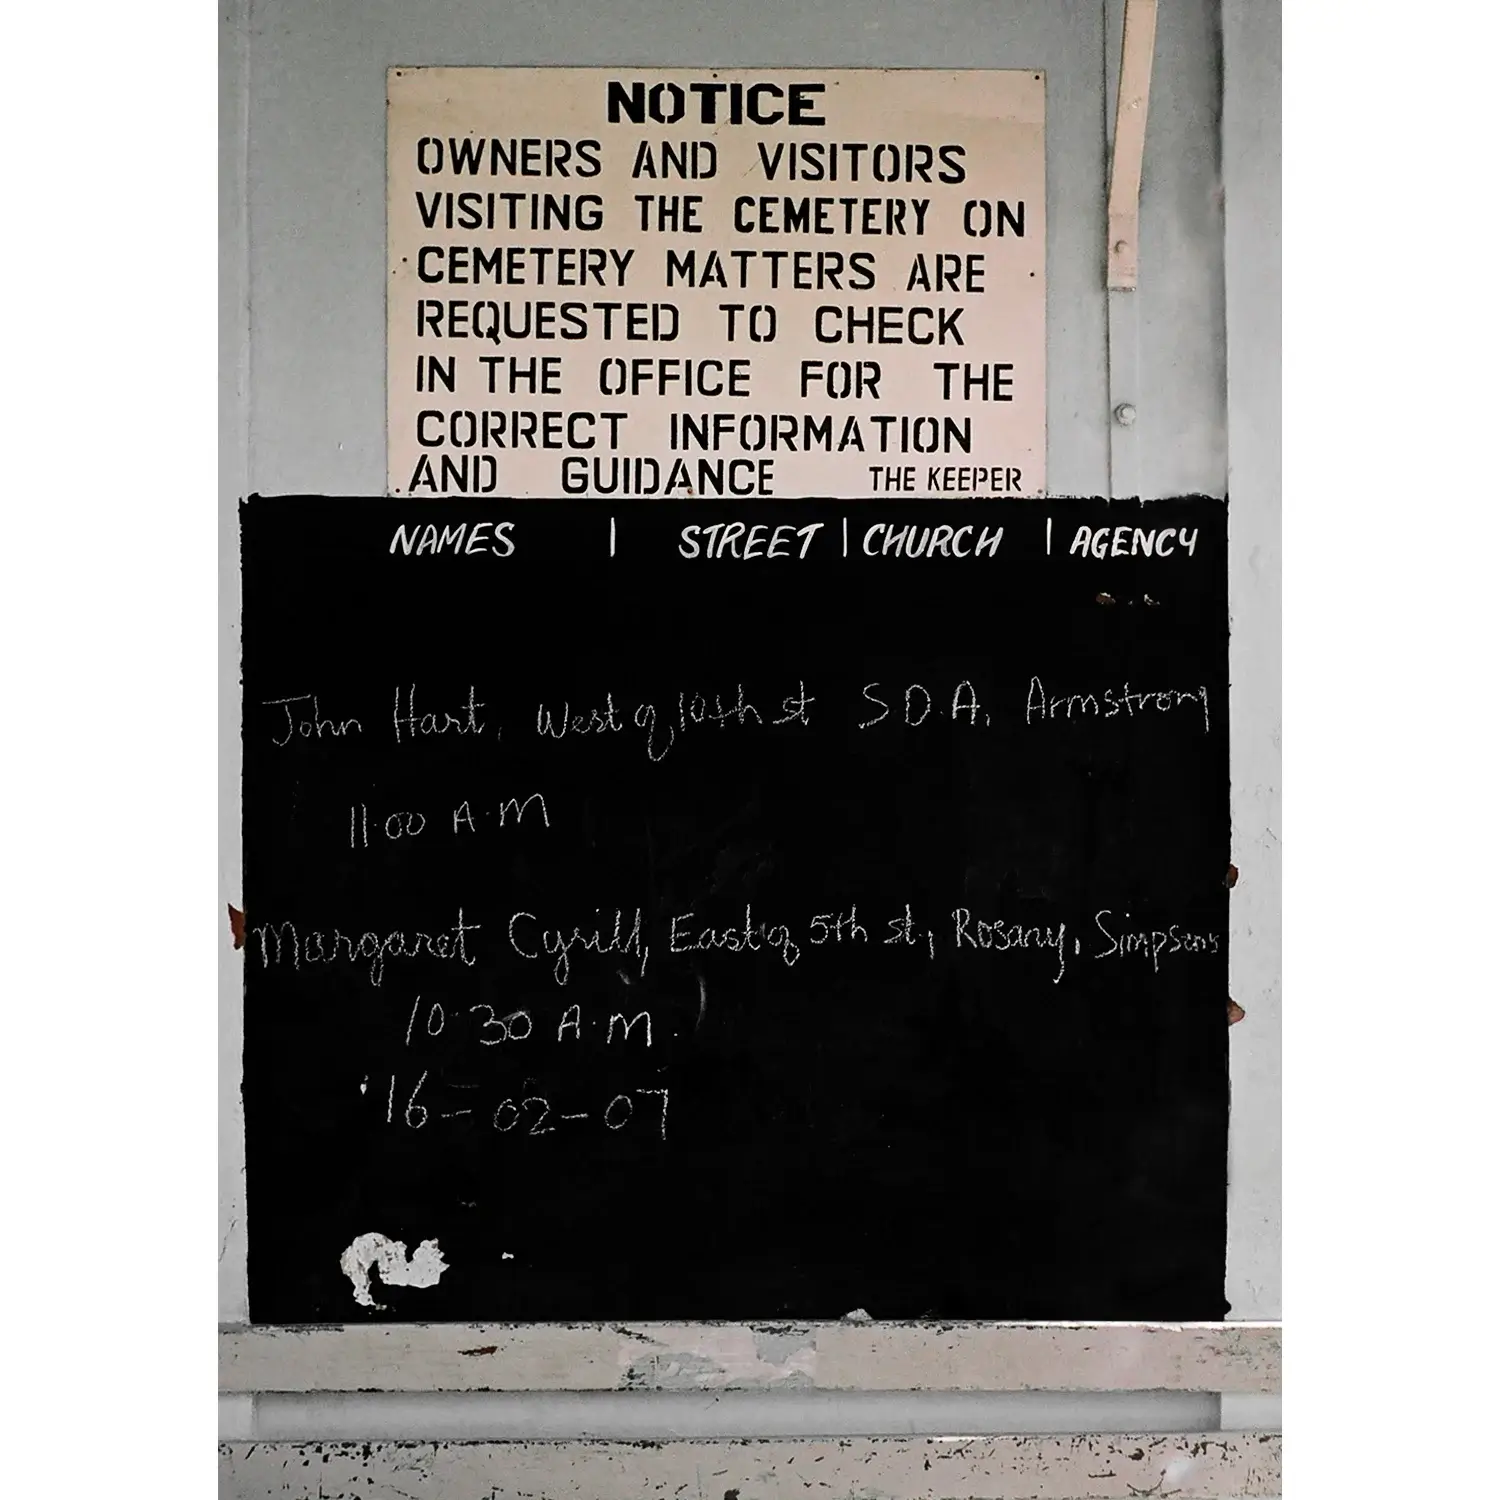 NOTICE
OWNERS AND VISITORS
VISITING THE CEMETERY ON
CEMETERY MATTERS ARE
REQUESTED TO CHECK
IN THE OFFICE FOR THE
CORRECT INFORMATION
AND GUIDANCE THE KEEPER
NAMES | STREET | CHURCH | AGENCY
John Hart, West of 10th st S.D.A, Armstrong
11.00 A.M
Margaret Cyrill, East of 5th st, Rosary, Simpsons
10.30 A.M.
16-02-07